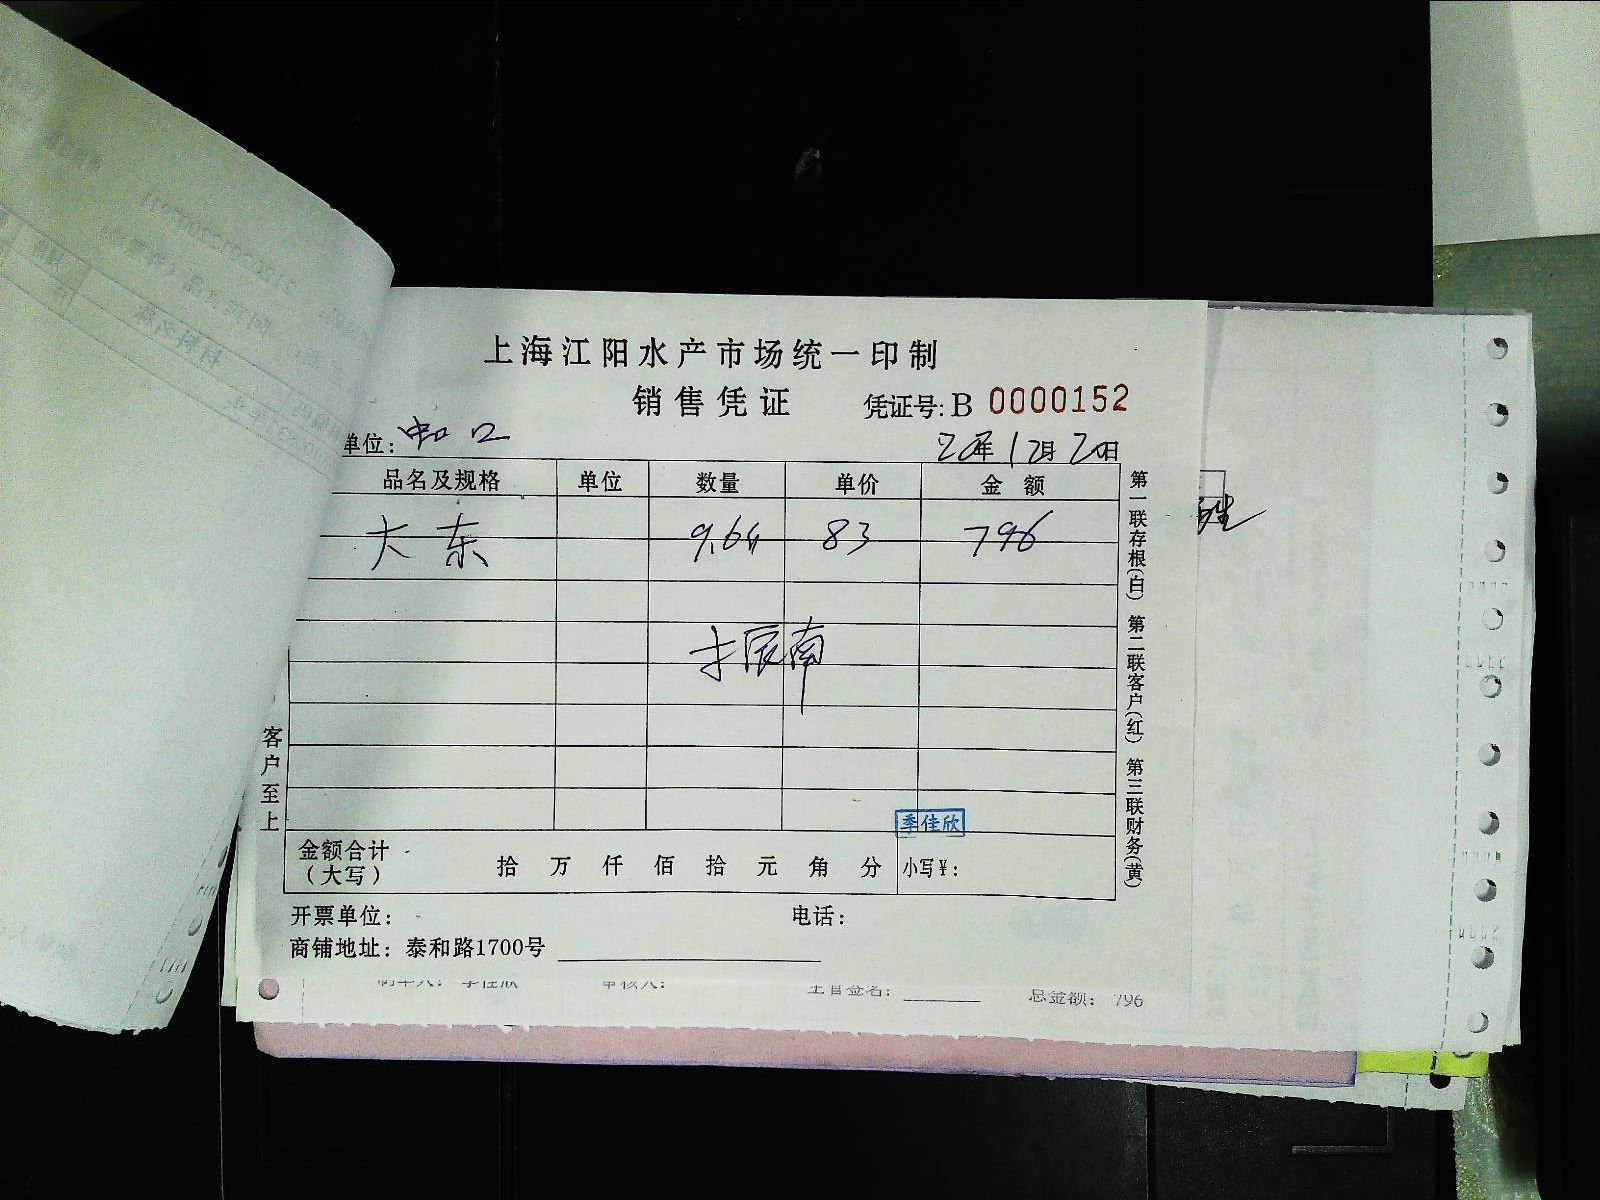 上海江阳水产市场统一印制
销售凭证 凭证号: B 0000152
单位:
20年12月20日
品名及规格 单位 数量 单价 金额
大东 9.6斤 83 796
季佳欣
金额合计
(大写) 拾 万 仟 佰 拾 元 角 分 小写¥:
开票单位: 电话:
商铺地址: 泰和路1700号
客户至上
第一联存根(白) 第二联客户(红) 第三联财务(黄)
制单人: 季佳欣 审核人: 主管签名: 总金额: 796